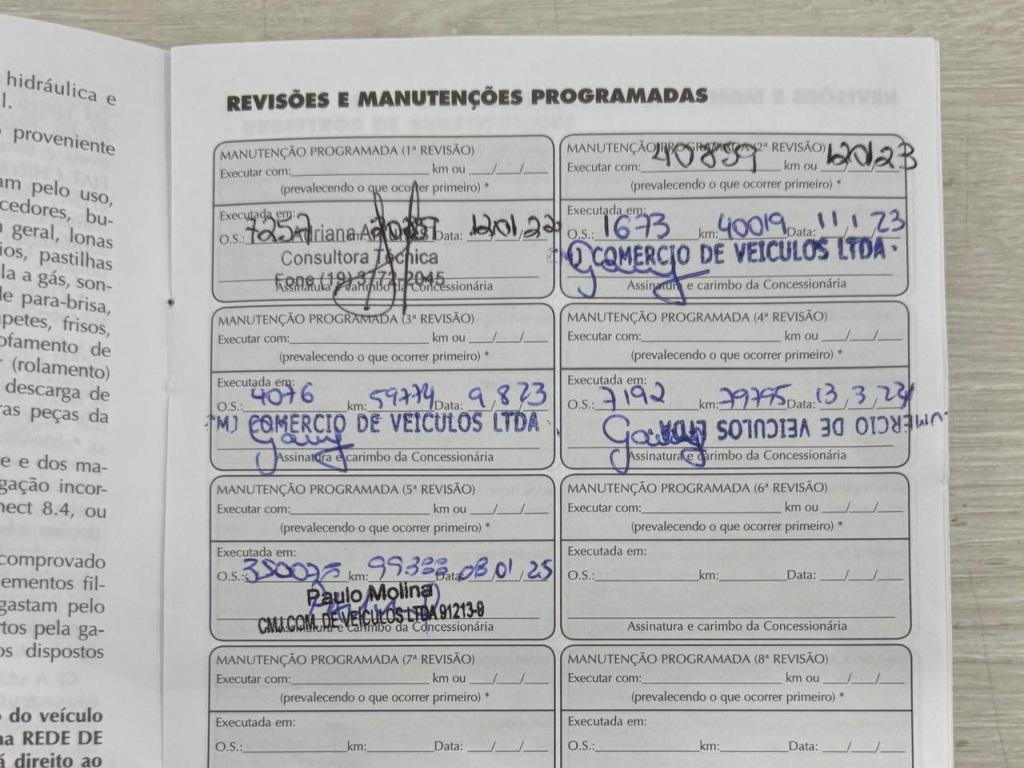 hidráulica e
l.
proveniente
am pelo uso,
cedores, bu-
geral, lonas
ios, pastilhas
la a gás, son-
le para-brisa,
petes, frisos,
ofamento de
r (rolamento)
descarga de
ras peças da
e e dos ma-
gação incor-
nect 8.4, ou
comprovado
lementos fil-
gastam pelo
rtos pela ga-
os dispostos
do veículo
na REDE DE
á direito ao
REVISÕES E MANUTENÇÕES PROGRAMADAS
MANUTENÇÃO PROGRAMADA (1ª REVISÃO)
Executar com: km ou / /
(prevalecendo o que ocorrer primeiro) *
Executada em:
O.S.: 7257 Adriana Data: 12/01/22
Consultora Técnica
Fone (19) 3772-2045
Assinatura e carimbo da Concessionária
MANUTENÇÃO PROGRAMADA (2ª REVISÃO)
Executar com: 40859 km ou 12/01/23
(prevalecendo o que ocorrer primeiro) *
Executada em:
O.S.: 1673 km: 40019 Data: 11/1/23
COMERCIO DE VEICULOS LTDA
Assinatura e carimbo da Concessionária
MANUTENÇÃO PROGRAMADA (3ª REVISÃO)
Executar com: km ou / /
(prevalecendo o que ocorrer primeiro) *
Executada em:
O.S.: 4076 km: 59774 Data: 9/8/23
MJ COMERCIO DE VEICULOS LTDA
Assinatura e carimbo da Concessionária
MANUTENÇÃO PROGRAMADA (4ª REVISÃO)
Executar com: km ou / /
(prevalecendo o que ocorrer primeiro) *
Executada em:
O.S.: 7192 km: 79795 Data: 13/3/24
COMERCIO DE VEICULOS LTDA
Assinatura e carimbo da Concessionária
MANUTENÇÃO PROGRAMADA (5ª REVISÃO)
Executar com: km ou / /
(prevalecendo o que ocorrer primeiro) *
Executada em:
O.S.: 350075 km: 99333 Data: 08/01/25
Paulo Molina
CMJ COM. DE VEICULOS LTDA 91213-9
Assinatura e carimbo da Concessionária
MANUTENÇÃO PROGRAMADA (6ª REVISÃO)
Executar com: km ou / /
(prevalecendo o que ocorrer primeiro) *
Executada em:
O.S.: km: Data: / /
Assinatura e carimbo da Concessionária
MANUTENÇÃO PROGRAMADA (7ª REVISÃO)
Executar com: km ou / /
(prevalecendo o que ocorrer primeiro) *
Executada em:
O.S.: km: Data: / /
MANUTENÇÃO PROGRAMADA (8ª REVISÃO)
Executar com: km ou / /
(prevalecendo o que ocorrer primeiro) *
Executada em:
O.S.: km: Data: / /